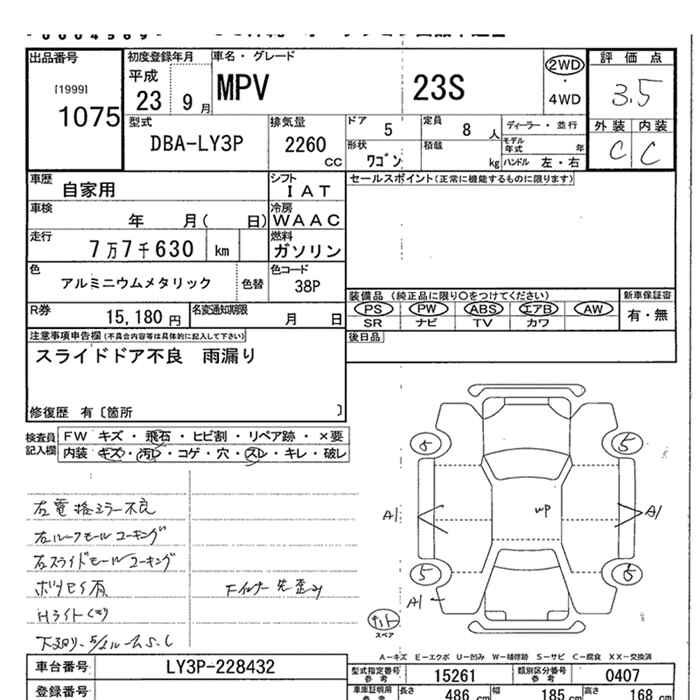 出品番号 初度登録年月 車名・グレード 評価点
[1999]
1075
平成
23 9月
MPV 23S
2WD
4WD
3.5
型式 排気量 ドア 5 定員 8人 ディーラー・並行 外装 内装
DBA-LY3P 2260 CC
形状 ワゴン 積載 kg
モデル年式 年
ハンドル 左・右
C C
車歴 自家用 シフト IAT セールスポイント(正常に機能するものに限ります)
車検 年 月( 日) 冷房 WAAC
走行 7万7千630 km 燃料 ガソリン
色 アルミニウムメタリック 色替 色コード 38P
装備品 (純正品に限り○をつけてください) 新車保証書
PS PW ABS エアB AW 有・無
SR ナビ TV カワ
R券 15,180円 名変通知期限 月 日
後日品
注意事項申告欄(不具合内容等は具体的に記入して下さい)
スライドドア不良 雨漏り
修復歴 有〔箇所 〕
検査員記入欄
FW キズ・飛石・ヒビ割・リペア跡・×要
内装 キズ・汚レ・コゲ・穴・スレ・キレ・破レ
左電格ミラー不良
左ルーフモールコーキング
右スライドモールコーキング
Hライトくもり
5 5
A1 wP A1
5 5
A1
スペア
A-キズ E-エクボ U-凹み W-補修跡 S-サビ C-腐食 XX-交換済
車台番号 LY3P-228432 型式指定番号 参考 15261 類別区分番号 参考 0407
登録番号 車庫証明用 参考 長さ 486 cm 幅 185 cm 高さ 168 cm